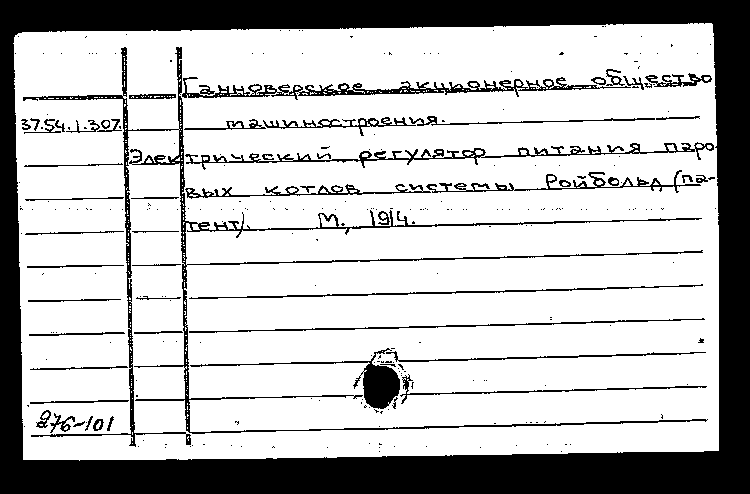 Ганноверское акционерное общество
37.54.1.307. машиностроения.
Электрический регулятор питания паро-
вых котлов системы Ройбольд (па-
тент). М., 1914.
276-101